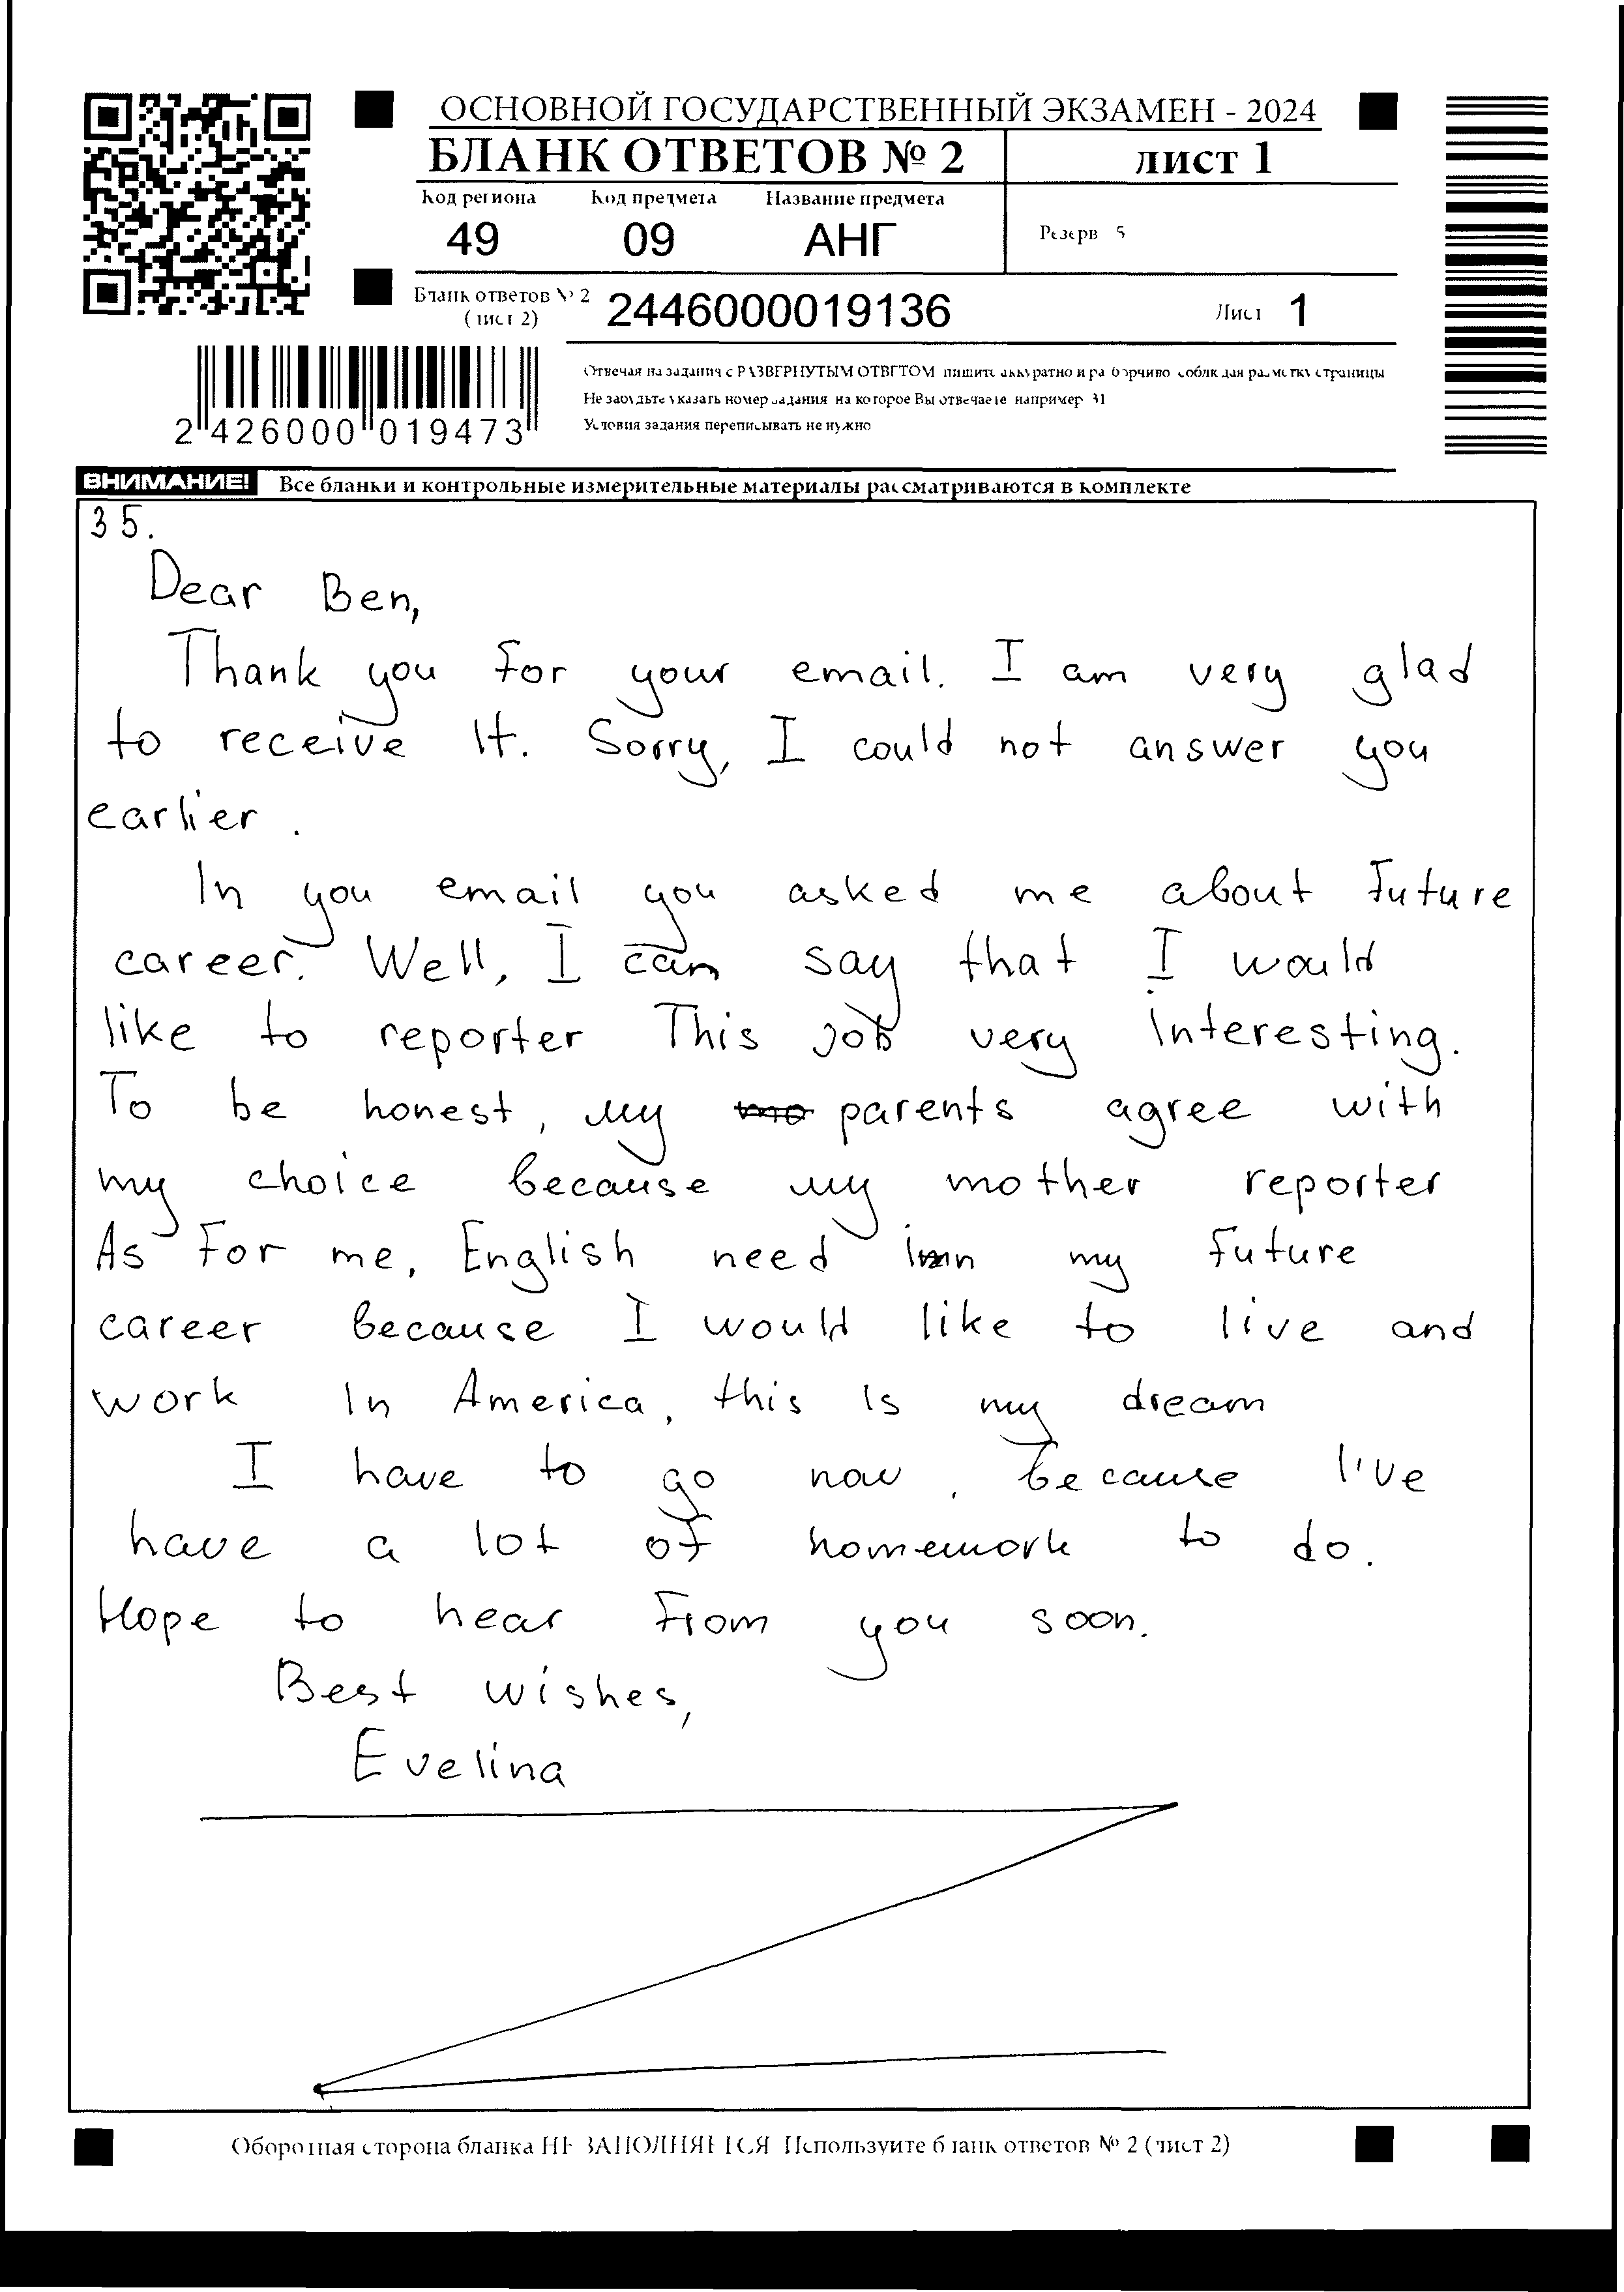 ОСНОВНОЙ ГОСУДАРСТВЕННЫЙ ЭКЗАМЕН - 2024
БЛАНК ОТВЕТОВ № 2
ЛИСТ 1
Код региона Код предмета Название предмета
49 09 АНГ
Резерв 5
Бланк ответов № 2
(лист 2)
2446000019136
Лист 1
2 426000 019473
Отвечая на задания с РАЗВЕРНУТЫМ ОТВЕТОМ пишите аккуратно и разборчиво соблюдая разметку страницы
Не забудьте указать номер задания на которое Вы отвечаете например 31
Условия задания переписывать не нужно
ВНИМАНИЕ! Все бланки и контрольные измерительные материалы рассматриваются в комплекте
35.
Dear Ben,
Thank you for your email. I am very glad
to receive it. Sorry, I could not answer you
earlier.
In you email you asked me about future
career. Well, I can say that I would
like to reporter This job very interesting.
To be honest, my parents agree with
my choice because my mother reporter
As for me, English need in my future
career because I would like to live and
work in America, this is my dream
I have to go now, because I've
have a lot of homework to do.
Hope to hear from you soon.
Best wishes,
Evelina
Оборотная сторона бланка НЕ ЗАПОЛНЯЕТСЯ Используйте бланк ответов № 2 (лист 2)